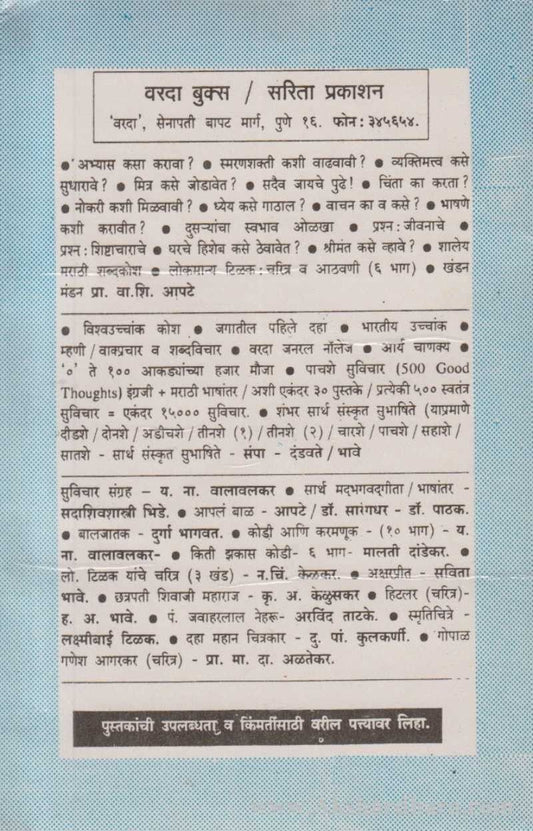 वरदा बुक्स / सरिता प्रकाशन
'वरदा', सेनापती बापट मार्ग, पुणे १६. फोन: ३४५६५४.
● 'अभ्यास कसा करावा? ● स्मरणशक्ती कशी वाढवावी? ● व्यक्तिमत्त्व कसे
सुधारावे? ● मित्र कसे जोडावेत? ● सदैव जायचे पुढे! ● चिंता का करता?
● नोकरी कशी मिळवावी? ● ध्येय कसे गाठाल? ● वाचन का व कसे? ● भाषणे
कशी करावीत? ● दुसऱ्यांचा स्वभाव ओळखा ● प्रश्न:जीवनाचे ●
प्रश्न: शिष्टाचाराचे ● घरचे हिशेब कसे ठेवावेत? ● श्रीमंत कसे व्हावे? ● शालेय
मराठी शब्दकोश ● लोकमान्य टिळक: चरित्र व आठवणी (६ भाग) ● खंडन
मंडन प्रा. वा.शि. आपटे
● विश्वउच्चांक कोश ● जगातील पहिले दहा ● भारतीय उच्चांक ●
म्हणी / वाक्प्रचार व शब्दविचार ● वरदा जनरल नॉलेज ● आर्य चाणक्य ●
'०' ते १०० आकड्यांच्या हजार मौजा ● पाचशे सुविचार (500 Good
Thoughts) इंग्रजी + मराठी भाषांतर / अशी एकंदर ३० पुस्तके / प्रत्येकी ५०० स्वतंत्र
सुविचार = एकंदर १५००० सुविचार. ● शंभर सार्थ संस्कृत सुभाषिते (याप्रमाणे
दीडशे / दोनशे / अडीचशे / तीनशे (१) / तीनशे (२) / चारशे / पाचशे / सहाशे /
सातशे - सार्थ संस्कृत सुभाषिते - संपा - दंडवते / भावे
सुविचार संग्रह – य. ना. वालावलकर ● सार्थ मद्भगवद्गीता / भाषांतर -
सदाशिवशास्त्री भिडे. ● आपलं बाळ - आपटे / डॉ. सारंगधर - डॉ. पाठक.
● बालजातक - दुर्गा भागवत. ● कोडी आणि करमणूक - (१० भाग) - य.
ना. वालावलकर- ● किती झकास कोडी- ६ भाग- मालती दांडेकर. ●
लो. टिळक यांचे चरित्र (३ खंड) - न.चिं. केळकर. ● अक्षरप्रीत - सविता
भावे. ● छत्रपती शिवाजी महाराज - कृ. अ. केळुसकर ● हिटलर (चरित्र)-
ह. अ. भावे. ● पं. जवाहरलाल नेहरू- अरविंद ताटके. ● स्मृतिचित्रे -
लक्ष्मीबाई टिळक. ● दहा महान चित्रकार - दु. पां. कुलकर्णी. ● गोपाळ
गणेश आगरकर (चरित्र) - प्रा. मा. दा. अळतेकर.
पुस्तकांची उपलब्धता व किंमतींसाठी वरील पत्त्यावर लिहा.